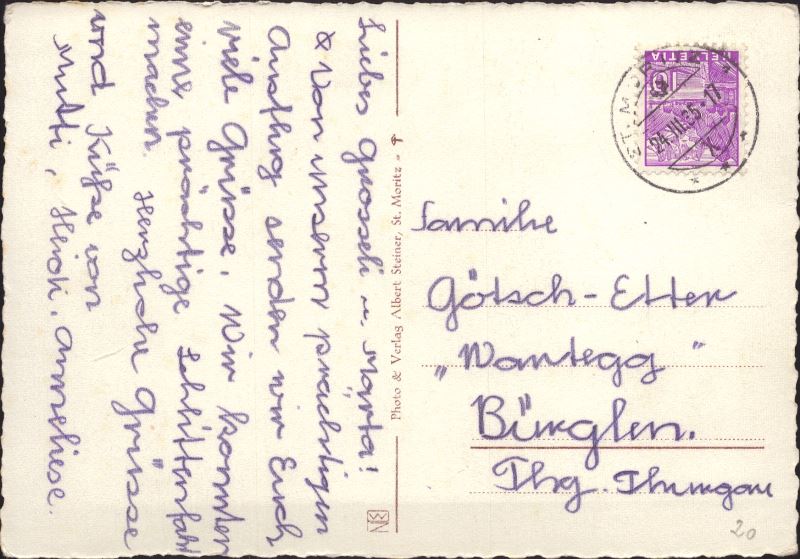 Liebes Grosseli u. Märta!
Von unserm prächtigen
Ausflug senden wir Euch
viele Grüsse. Wir konnten
eine prächtige Schlittenfahrt
machen. Herzliche Grüsse
und Küsse von
Mutti, Heidi, Anneliese.
Photo & Verlag Albert Steiner, St. Moritz
HELVETIA
10
24.III.35.-17
Familie
Götsch-Etter
„Wartegg"
Bürglen.
Thg. Thurgau
20